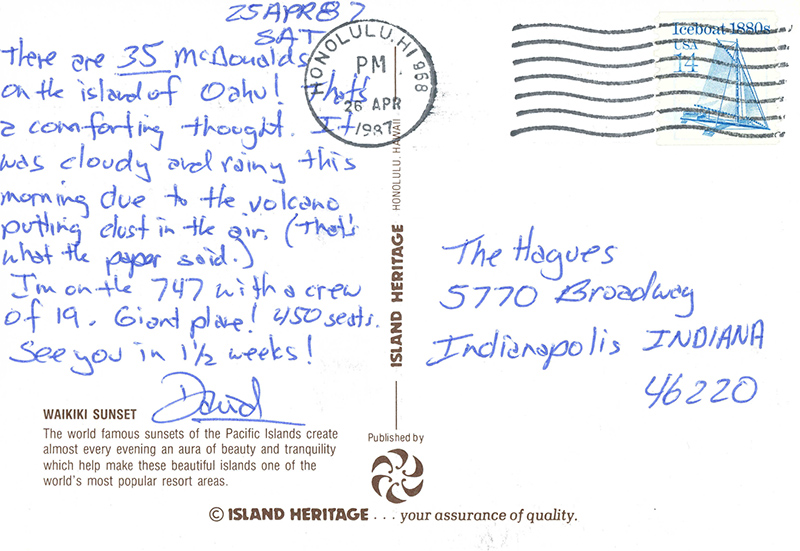 25 APR 87
SAT
There are 35 McDonalds
on the island of Oahu! That's
a comforting thought. It
was cloudy and rainy this
morning due to the volcano
putting dust in the air. (That's
what the paper said.)
I'm on the 747 with a crew
of 19. Giant plane! 450 seats.
See you in 1½ weeks!
David
WAIKIKI SUNSET
The world famous sunsets of the Pacific Islands create
almost every evening an aura of beauty and tranquility
which help make these beautiful islands one of the
world's most popular resort areas.
HONOLULU, HI 968
PM
26 APR
1987
Iceboat 1880s
USA
14
ISLAND HERITAGE HONOLULU, HAWAII
Published by
The Hagues
5770 Broadway
Indianapolis INDIANA
46220
© ISLAND HERITAGE . . . your assurance of quality.